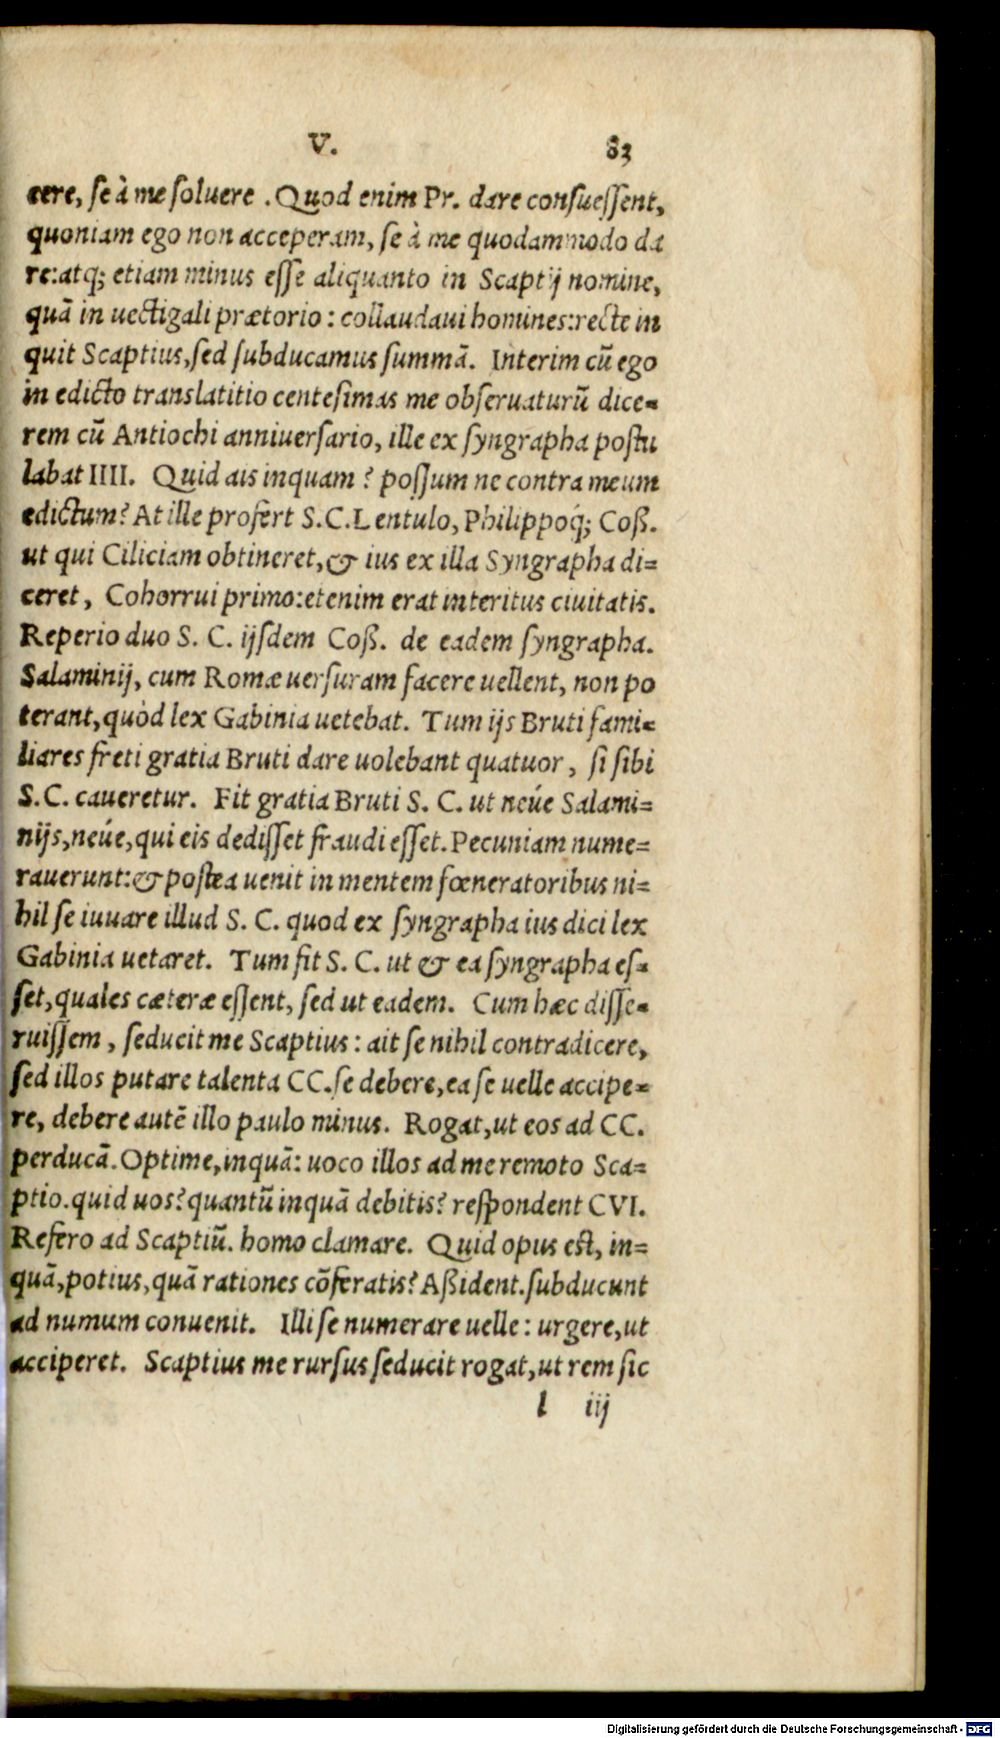 V. 83
cere, ſe à me ſoluere . Quod enim Pr. dare conſueſſent,
quoniam ego non acceperam, ſe à me quodammodo da
re:atq; etiam minus eſſe aliquanto in Scaptij nomine,
quā in uectigali prætorio : collaudaui homines:recte in
quit Scaptius,ſed ſubducamus ſummā. Interim cū ego
in edicto translatitio centeſimas me obſeruaturū dice-
rem cū Antiochi anniuerſario, ille ex ſyngrapha poſtu
labat IIII. Quid ais inquam ? poſſum ne contra meum
edictum? At ille profert S.C.Lentulo, Philippoq́; Coß.
ut qui Ciliciam obtineret,& ius ex illa Syngrapha di=
ceret, Cohorrui primo:etenim erat interitus ciuitatis.
Reperio duo S. C. ijſdem Coß. de eadem ſyngrapha.
Salaminij, cum Romæ uerſuram facere uellent, non po
terant,quòd lex Gabinia uetebat. Tum ijs Bruti fami-
liares freti gratia Bruti dare uolebant quatuor, ſi ſibi
S.C. caueretur. Fit gratia Bruti S. C. ut neúe Salami=
nijs,neúe,qui eis dediſſet fraudi eſſet. Pecuniam nume=
rauerunt:& poſtea uenit in mentem fœneratoribus ni=
hil ſe iuuare illud S. C. quod ex ſyngrapha ius dici lex
Gabinia uetaret. Tum fit S. C. ut & ea ſyngrapha eſ-
ſet,quales cæteræ eſſent, ſed ut eadem. Cum hæc diſſe-
ruiſſem, ſeducit me Scaptius : ait ſe nihil contradicere,
ſed illos putare talenta CC.ſe debere,ea ſe uelle accipe-
re, debere autē illo paulo minus. Rogat,ut eos ad CC.
perducā. Optime,inquā: uoco illos ad me remoto Sca=
ptio.quid uos?quantū inquā debitis? reſpondent CVI.
Refero ad Scaptiū. homo clamare. Quid opus eſt, in=
quā,potius,quā rationes cōferatis? Aßident.ſubducunt
ad numum conuenit. Illi ſe numerare uelle : urgere,ut
acciperet. Scaptius me rurſus ſeducit rogat,ut rem ſic
l iij
Digitalisierung gefördert durch die Deutsche Forschungsgemeinschaft - DFG